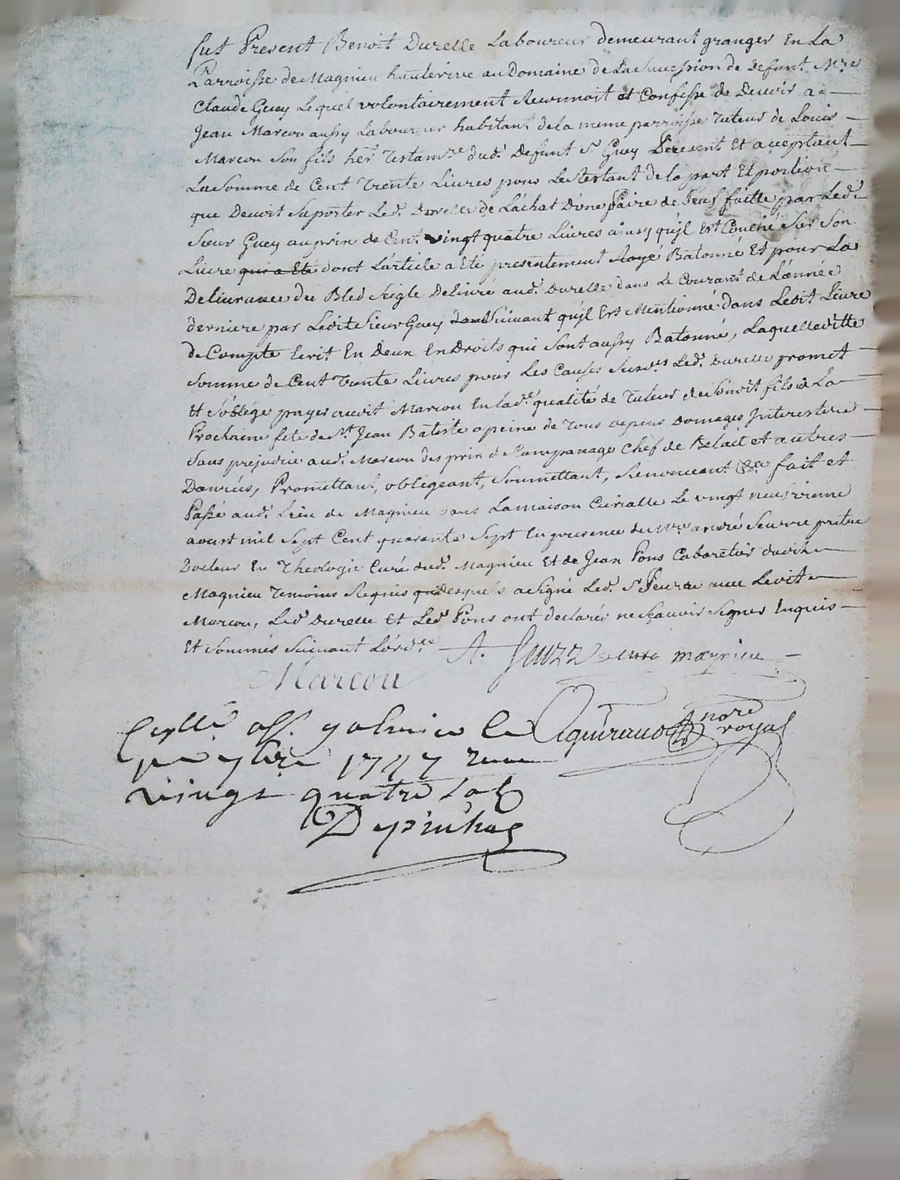 fut Present Benoit Durelle Laboureur demeurant granger En La
Parroisse de Magnieu hauterive au Domaine de La succession de Defunt Mre
Claude Guey Lequel volontairement Reconnoit et Confesse de Devoir a
Jean Marcou aussy Laboureur habitant de la meme parroisse Tuteur de Louis
Marcou Son fils hers Testamre dud. Defunt Sr Guey Present Et aceptant
La Somme de Cent Trente Livres pour Le Restant de la part Et portion
que Devoit Suporter Led. Durelle de L'achat D'une Paire de Beufs faitte par Led.
Sieur Guey au prix de Cent vingt quatre Livres ainsy qu'jl Est Couché Sur Son
Livre qui a été dont L'article a été presentement Rayé Batonné Et pour La
Delivrance du Bled Seigle Delivré aud. Durelle dans Le Courant de L'année
derniere par Ledit Sieur Guey Suivant qu'jl Est Mentionné dans Ledit Livre
de Compte Ecrit En Deux EnDroits qui Sont aussy Batonné, Laquelle ditte
Somme de Cent Trente Livres pour Les Causes Susd. Led. Durelle promet
Et S'oblége payer audit Marcou En lad. qualité de Tuteur de fils a La
Prochaine fête de St Jean Batiste a peine de Tous depens Domages Jnterests
Sans prejudice aud. Marcou des prix de Campanage Chef de Betail et autres
Danrées, Promettant, obligeant, Soumettant, Renonceant &c. fait et
Passé aud. Lieu de Magnieu dans La maison Curialle Le vingt neufvieme
aoust mil Sept Cent quarante Sept En presence de Mre andré prêtre
Docteur En Théologie Curé dud. Magnieu Et de Jean Pons Cabaretier dudit
Magnieu Temoins Requis qui a Signé Led. Sr avec Ledit
Marcou, Led. Durelle Et Led. Pons ont declarés ne Sçavoir Signer Enquis
Et Sommés Suivant L'ordce
A. curé magnieu
Marcou
nore royal
le
1747
vingt quatre sols